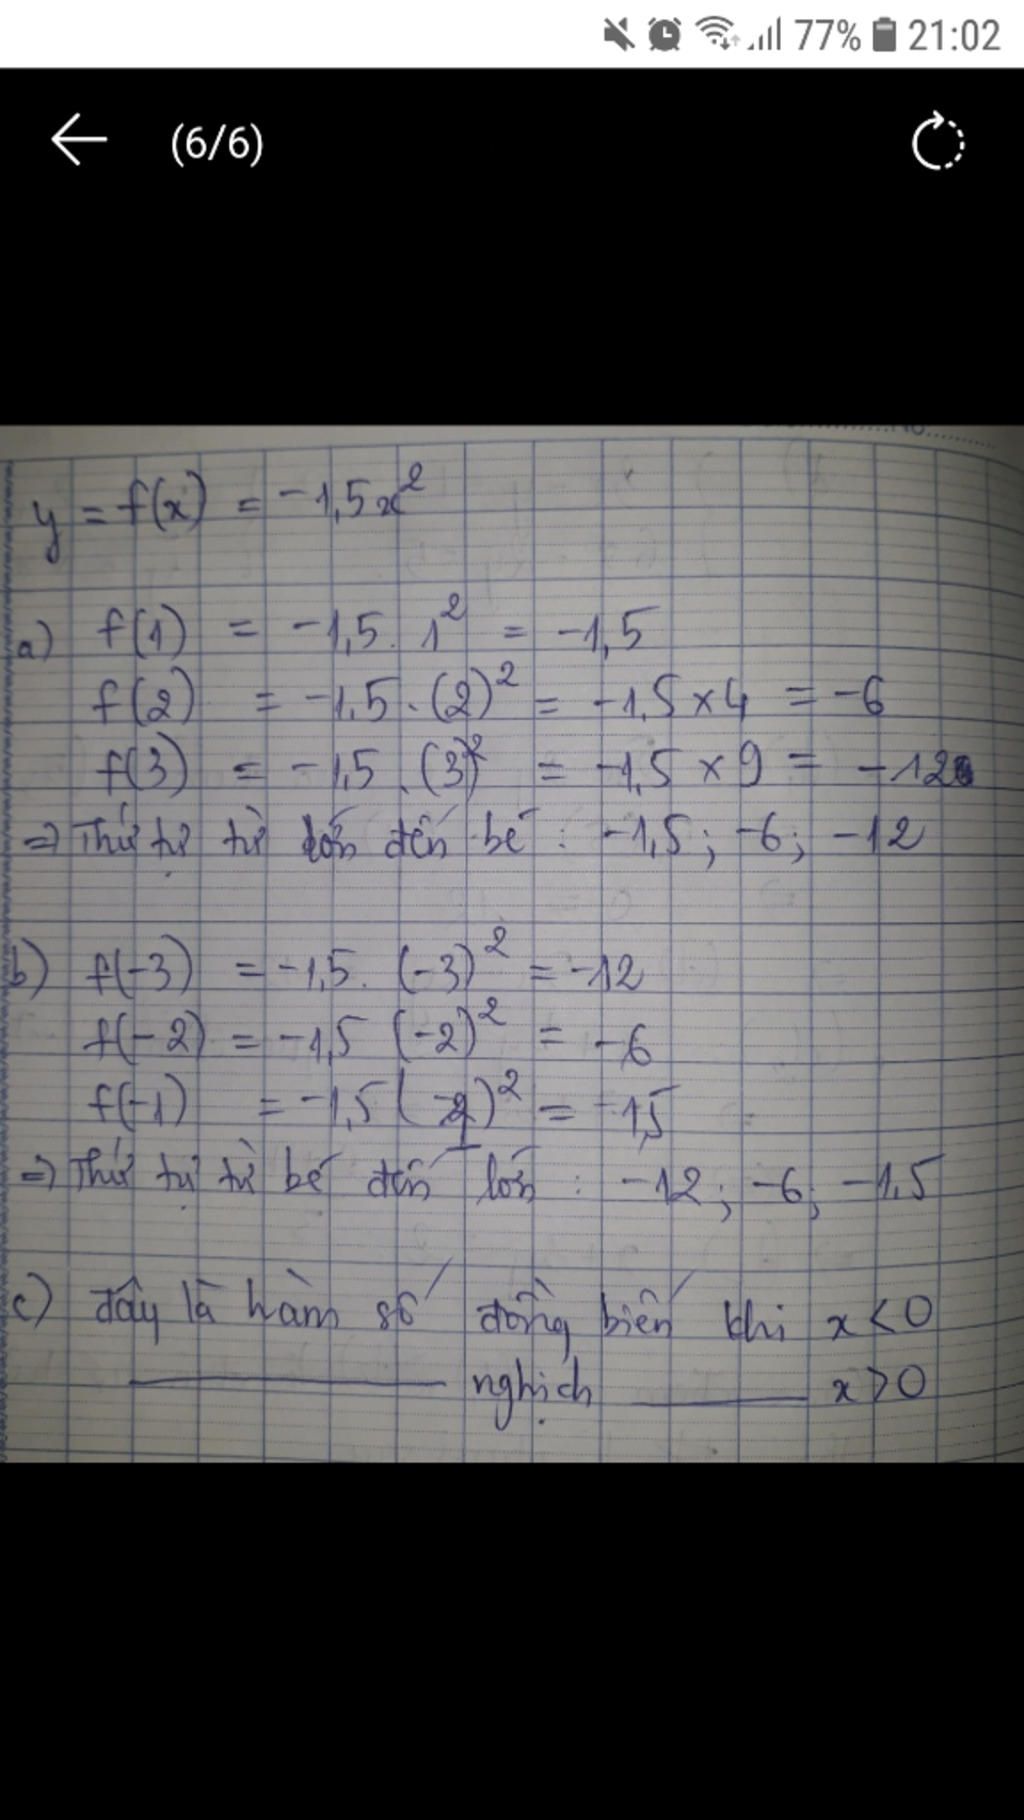 77% 21:02
(6/6)
y = f(x) = -1,5x²
a) f(1) = -1,5. 1² = -1,5
f(2) = -1,5.(2)² = -1,5×4 = -6
f(3) = -1,5.(3)² = -1,5×9 = -12
=> Thứ tự từ lớn đến bé : -1,5; -6; -12
b) f(-3) = -1,5. (-3)² = -12
f(-2) = -1,5 (-2)² = -6
f(-1) = -1,5 (-1)² = -1,5
=> Thứ tự từ bé đến lớn : -12; -6; -1,5
c) đây là hàm số đồng biến khi x<0
nghịch x>0